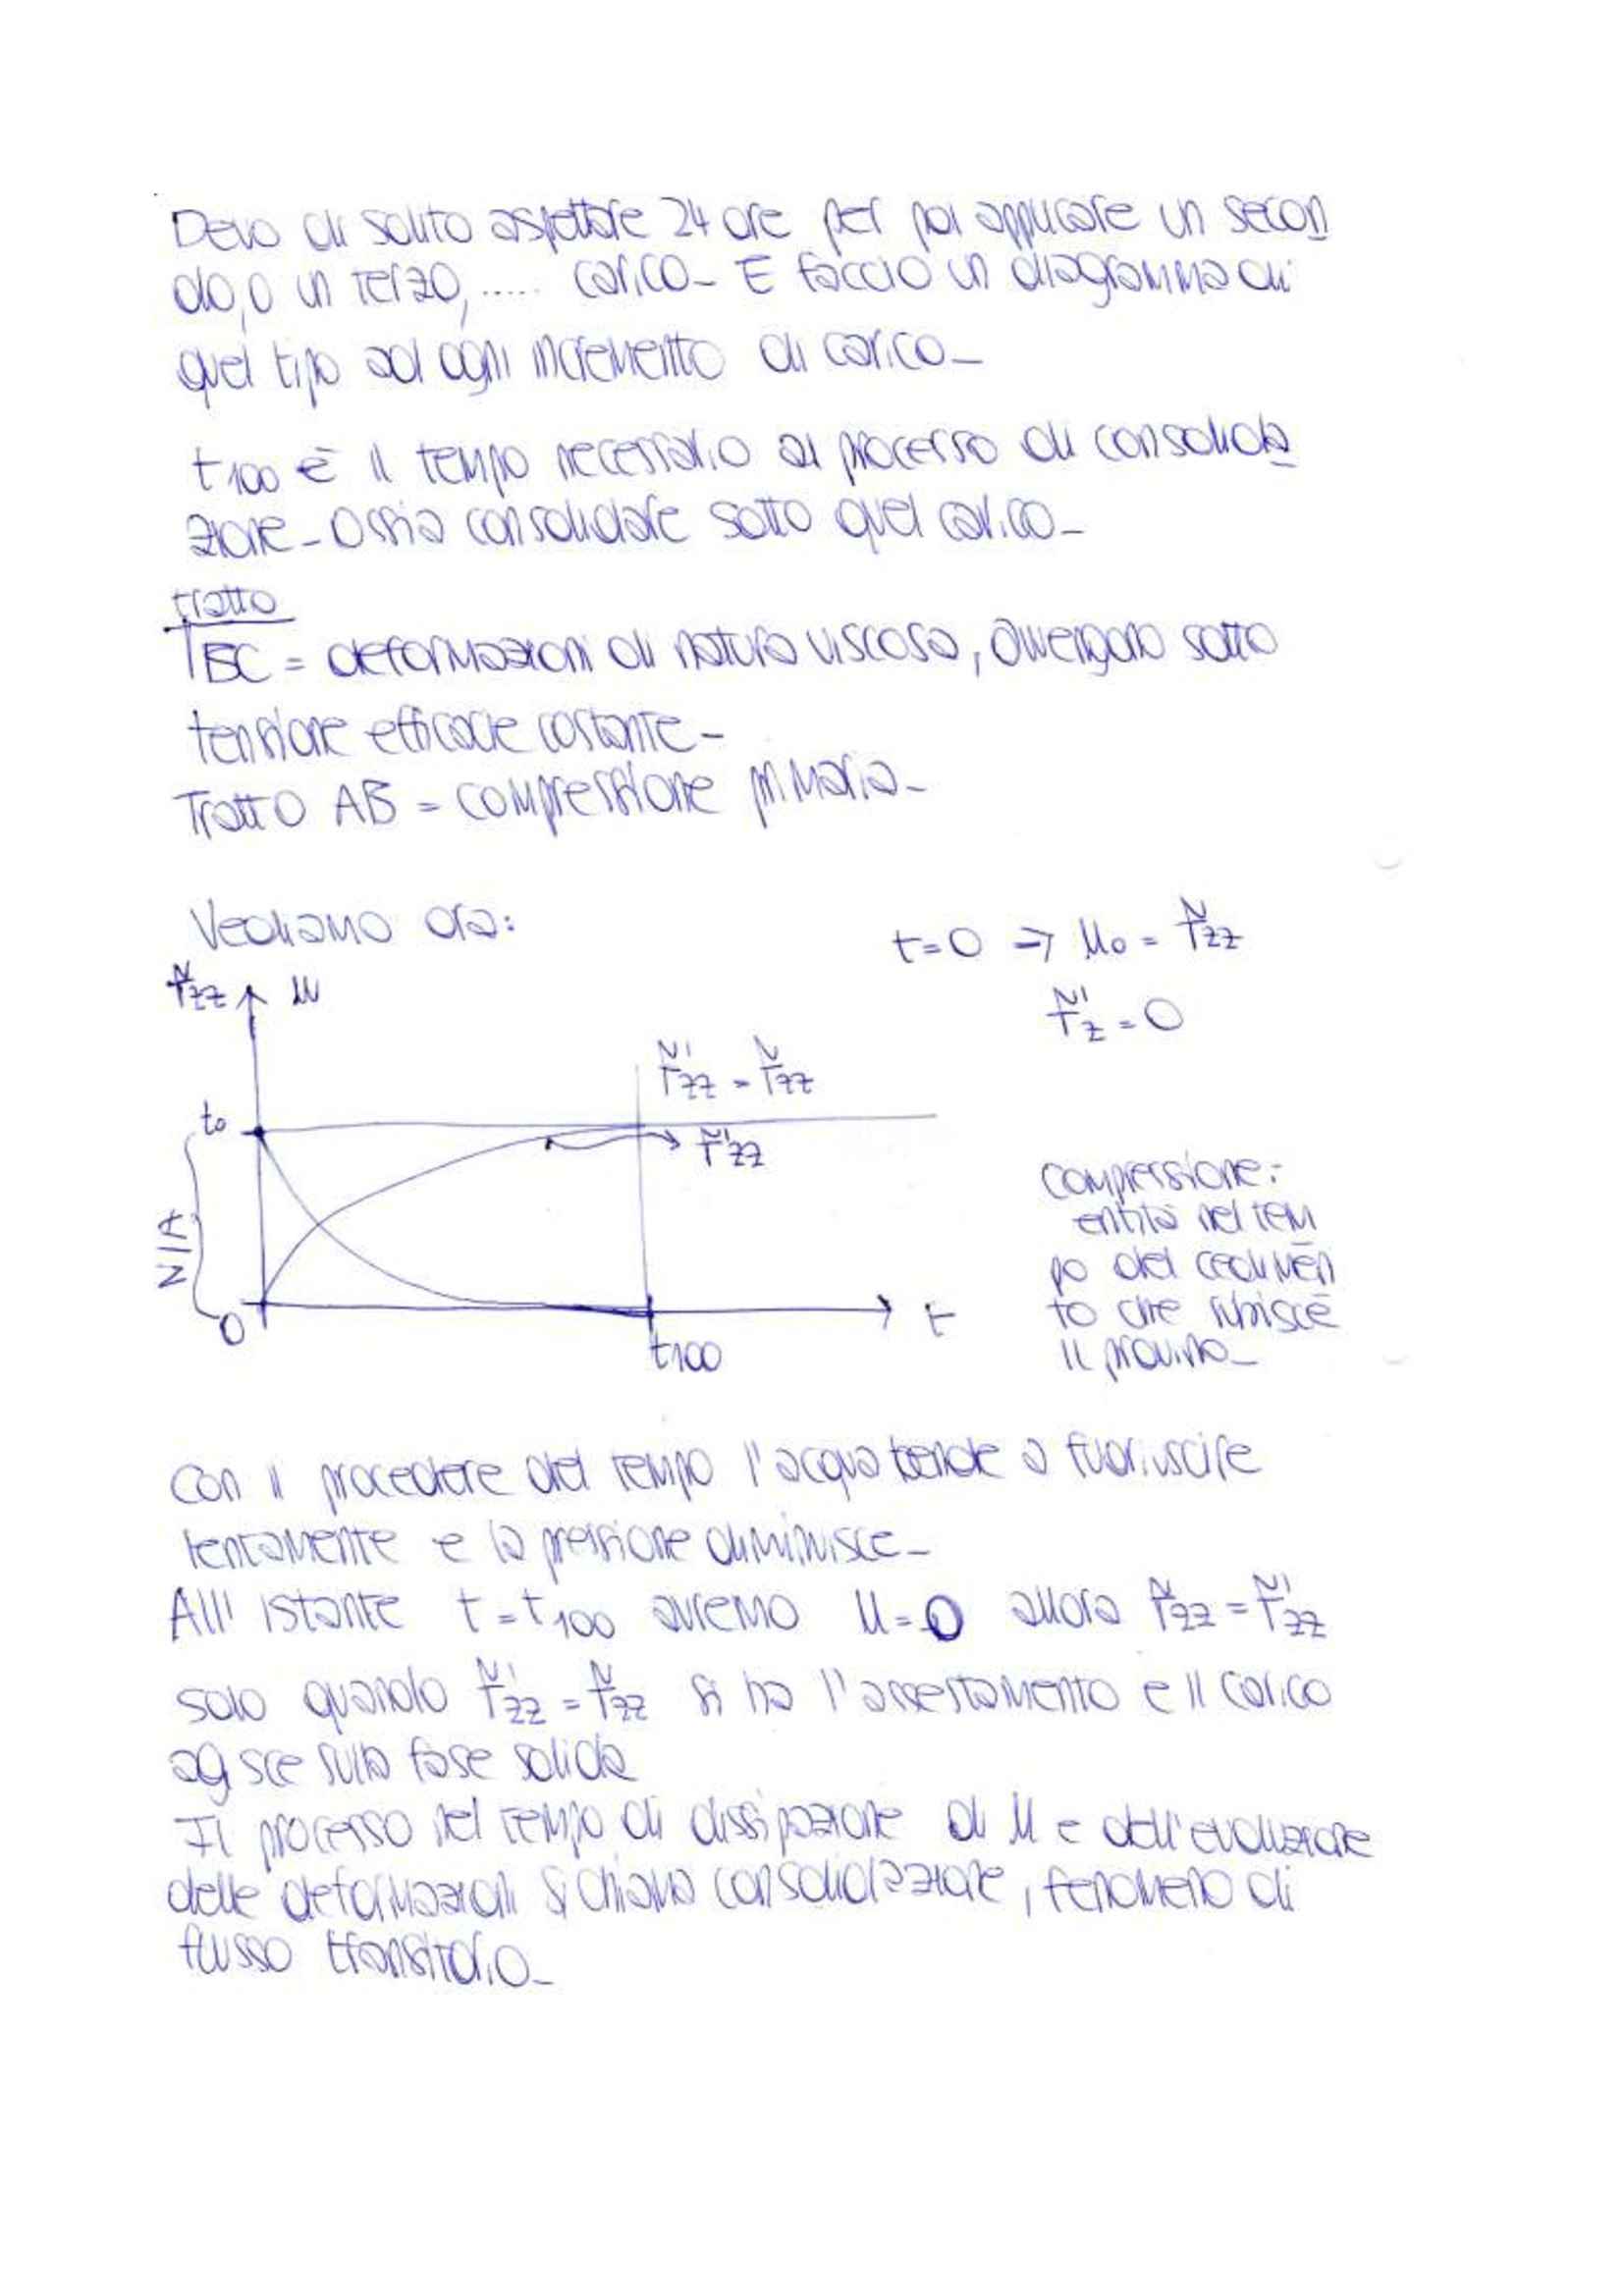 Devo di solito aspettare 24 ore per poi applicare un secon
do, o un terzo, ..... carico_ E faccio un diagramma di
quel tipo ad ogni incremento di carico_
t100 è il tempo necessario al processo di consolida
zione_ Ossia consolidare sotto quel carico_
tratto
BC = deformazioni di natura viscosa, avvengono sotto
tensione efficace costante_
Tratto AB = compressione primaria_
Vediamo ora:
t=0 ⇒ u0 = Ťzz
Ť'z = 0
Ťzz u
Ť'zz = Ťzz
t0
Ť'zz
N/A
0
t
t100
compressione:
entità nel tem
po del cedimen
to che subisce
il provino_
Con il procedere del tempo l'acqua tende a fuoriuscire
lentamente e la pressione diminuisce_
All' istante t=t100 avremo u=0 allora Ťzz = Ť'zz
solo quando Ť'zz = Ťzz si ha l'assestamento e il carico
agisce sulla fase solida
Il processo nel tempo di dissipazione di u e dell'evoluzione
delle deformazioni si chiama consolidazione, fenomeno di
flusso transitorio_